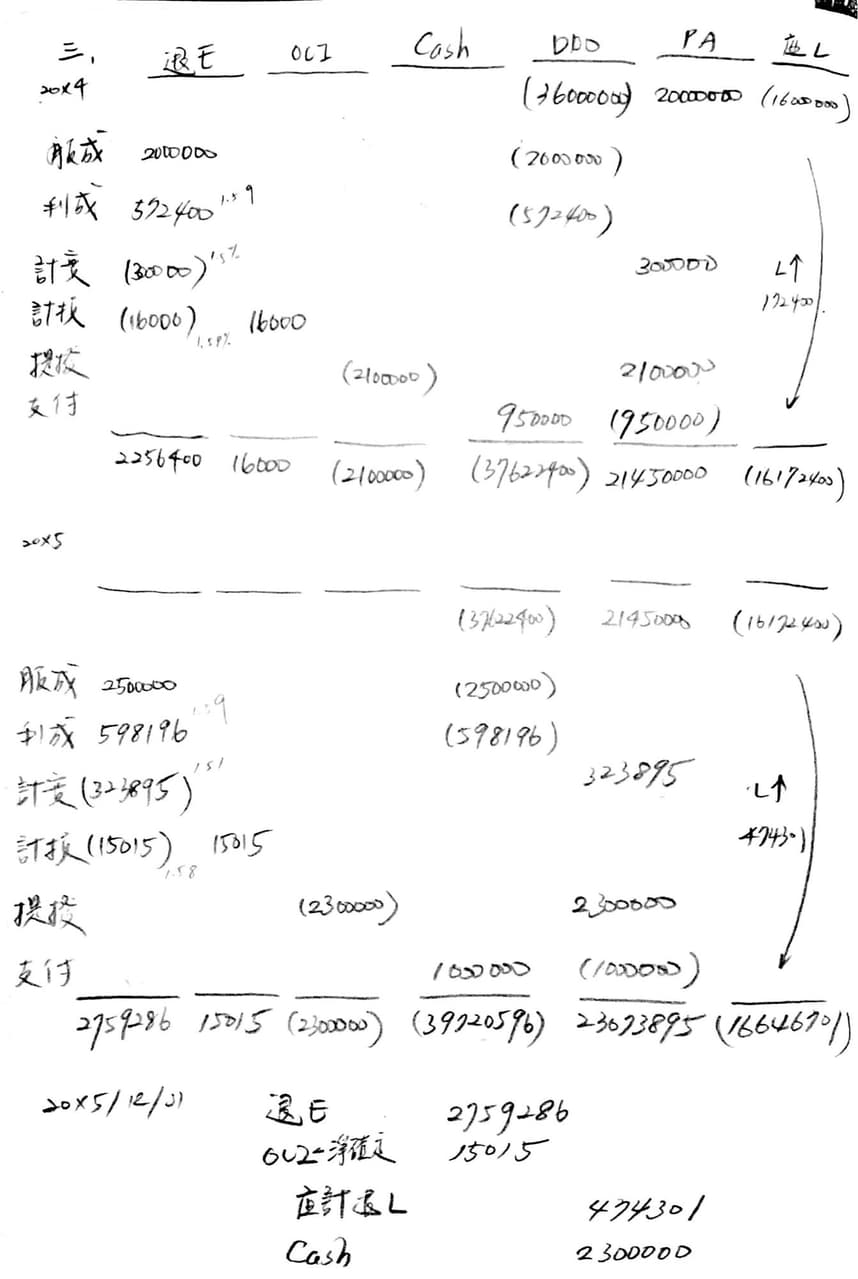 三、 退E OCI Cash DBO PA 應L
20×4 (36000000) 20000000 (16000000)
服成 2000000 (2000000)
利成 572400 1.59 (572400)
計度 (300000) 1.5% 300000 L↑
172400
計报 (16000) 1.59% 16000
提拨 (2100000) 2100000
支付 950000 (950000)
2256400 16000 (2100000) (37622400) 21450000 (16172400)
20×5
(37622400) 21450000 (16172400)
服成 2500000 (2500000)
利成 598196 1.59 (598196)
計度 (323895) 1.51 323895 L↑
474301
計报 (15015) 1.58 15015
提拨 (2300000) 2300000
支付 1000000 (1000000)
2759286 15015 (2300000) (39720596) 23073895 (16646701)
20×5/12/31 退E 2759286
OCI-淨確定 15015
應計退L 474301
Cash 2300000